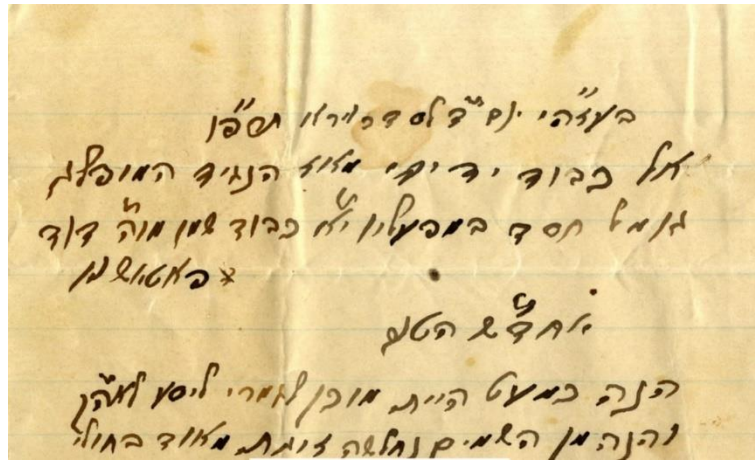 בעזה"י יום ד' לסדר וירא תש"פו
אל כבוד ידידי מאוד הנגיד המופלג
גומל חסד במפעליו כבוד שמו מוה' דוד
אחד"ש הטוב
הנה כמעט היית מוכן לגמרי ליסע לאה"ק
והנה מן השמים נחלשה מאוד בחולי